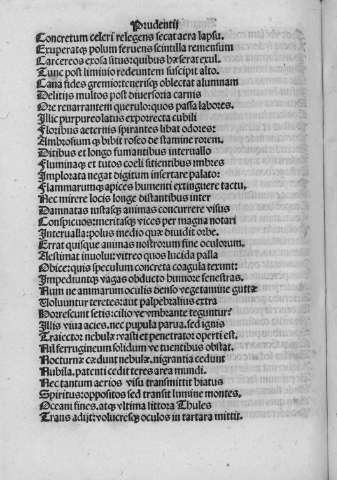 Prudentij
Concretum celeri relegens secat aera lapsu.
Exuperatq̃ polum feruens scintilla remensum
Carcereos exosa situs: quibus hæserat exul.
Tunc post liminio redeuntem suscipit alto.
Cana fides gremio: tenerisq̃ oblectat alumnam
Delitijs multos post diuersoria carnis
Ore renarrantem querulo: quos passa labores.
Illic purpureo latus exporrecta cubili
Floribus aeternis spirantes libat odores:
Ambrosiumq̃ bibit roseo de stamine rorem.
Ditibus et longo fumantibus interuallo
Fluminaq̃ et totos coeli sitientibus imbres
Implorata negat digitum insertare palato:
Flammarumq̃ apices humenti extinguere tactu.
Nec mirere locis longe distantibus inter
Damnatas iustasq̃ animas concurrere visus
Conspicuos: meritasq̃ vices per magna notari
Interualla: polus medio quæ diuidit orbe.
Errat quisque animas nostrorum fine oculorum.
Aestimat inuoluit vitreo quos lucida palla
Obice: quis speculum concreta coagula texunt:
Impediuntq̃ vagas obducto humore fenestras.
Num ne animarum oculis denso vegetamine guttæ
Voluuntur teretes: aut palpebralius extra
Horrescunt setis: cilio ve vmbrante teguntur?
Illis viua acies, nec pupula parua, sed ignis
Traiector nebulæ: vasti et penetrator operti est.
Nil ferrugineum solidum ve tuentibus obstat.
Nocturnæ cædunt nebulæ, nigrantia cedunt
Nubila, patenti cedit teres area mundi.
Nec tantum aerios visu transmittit hiatus
Spiritus: oppositos sed transit lumine montes.
Oceani fines, atq̃ vltima littora Thules
Transadijt: volucresq̃ oculos in tartara mittit.